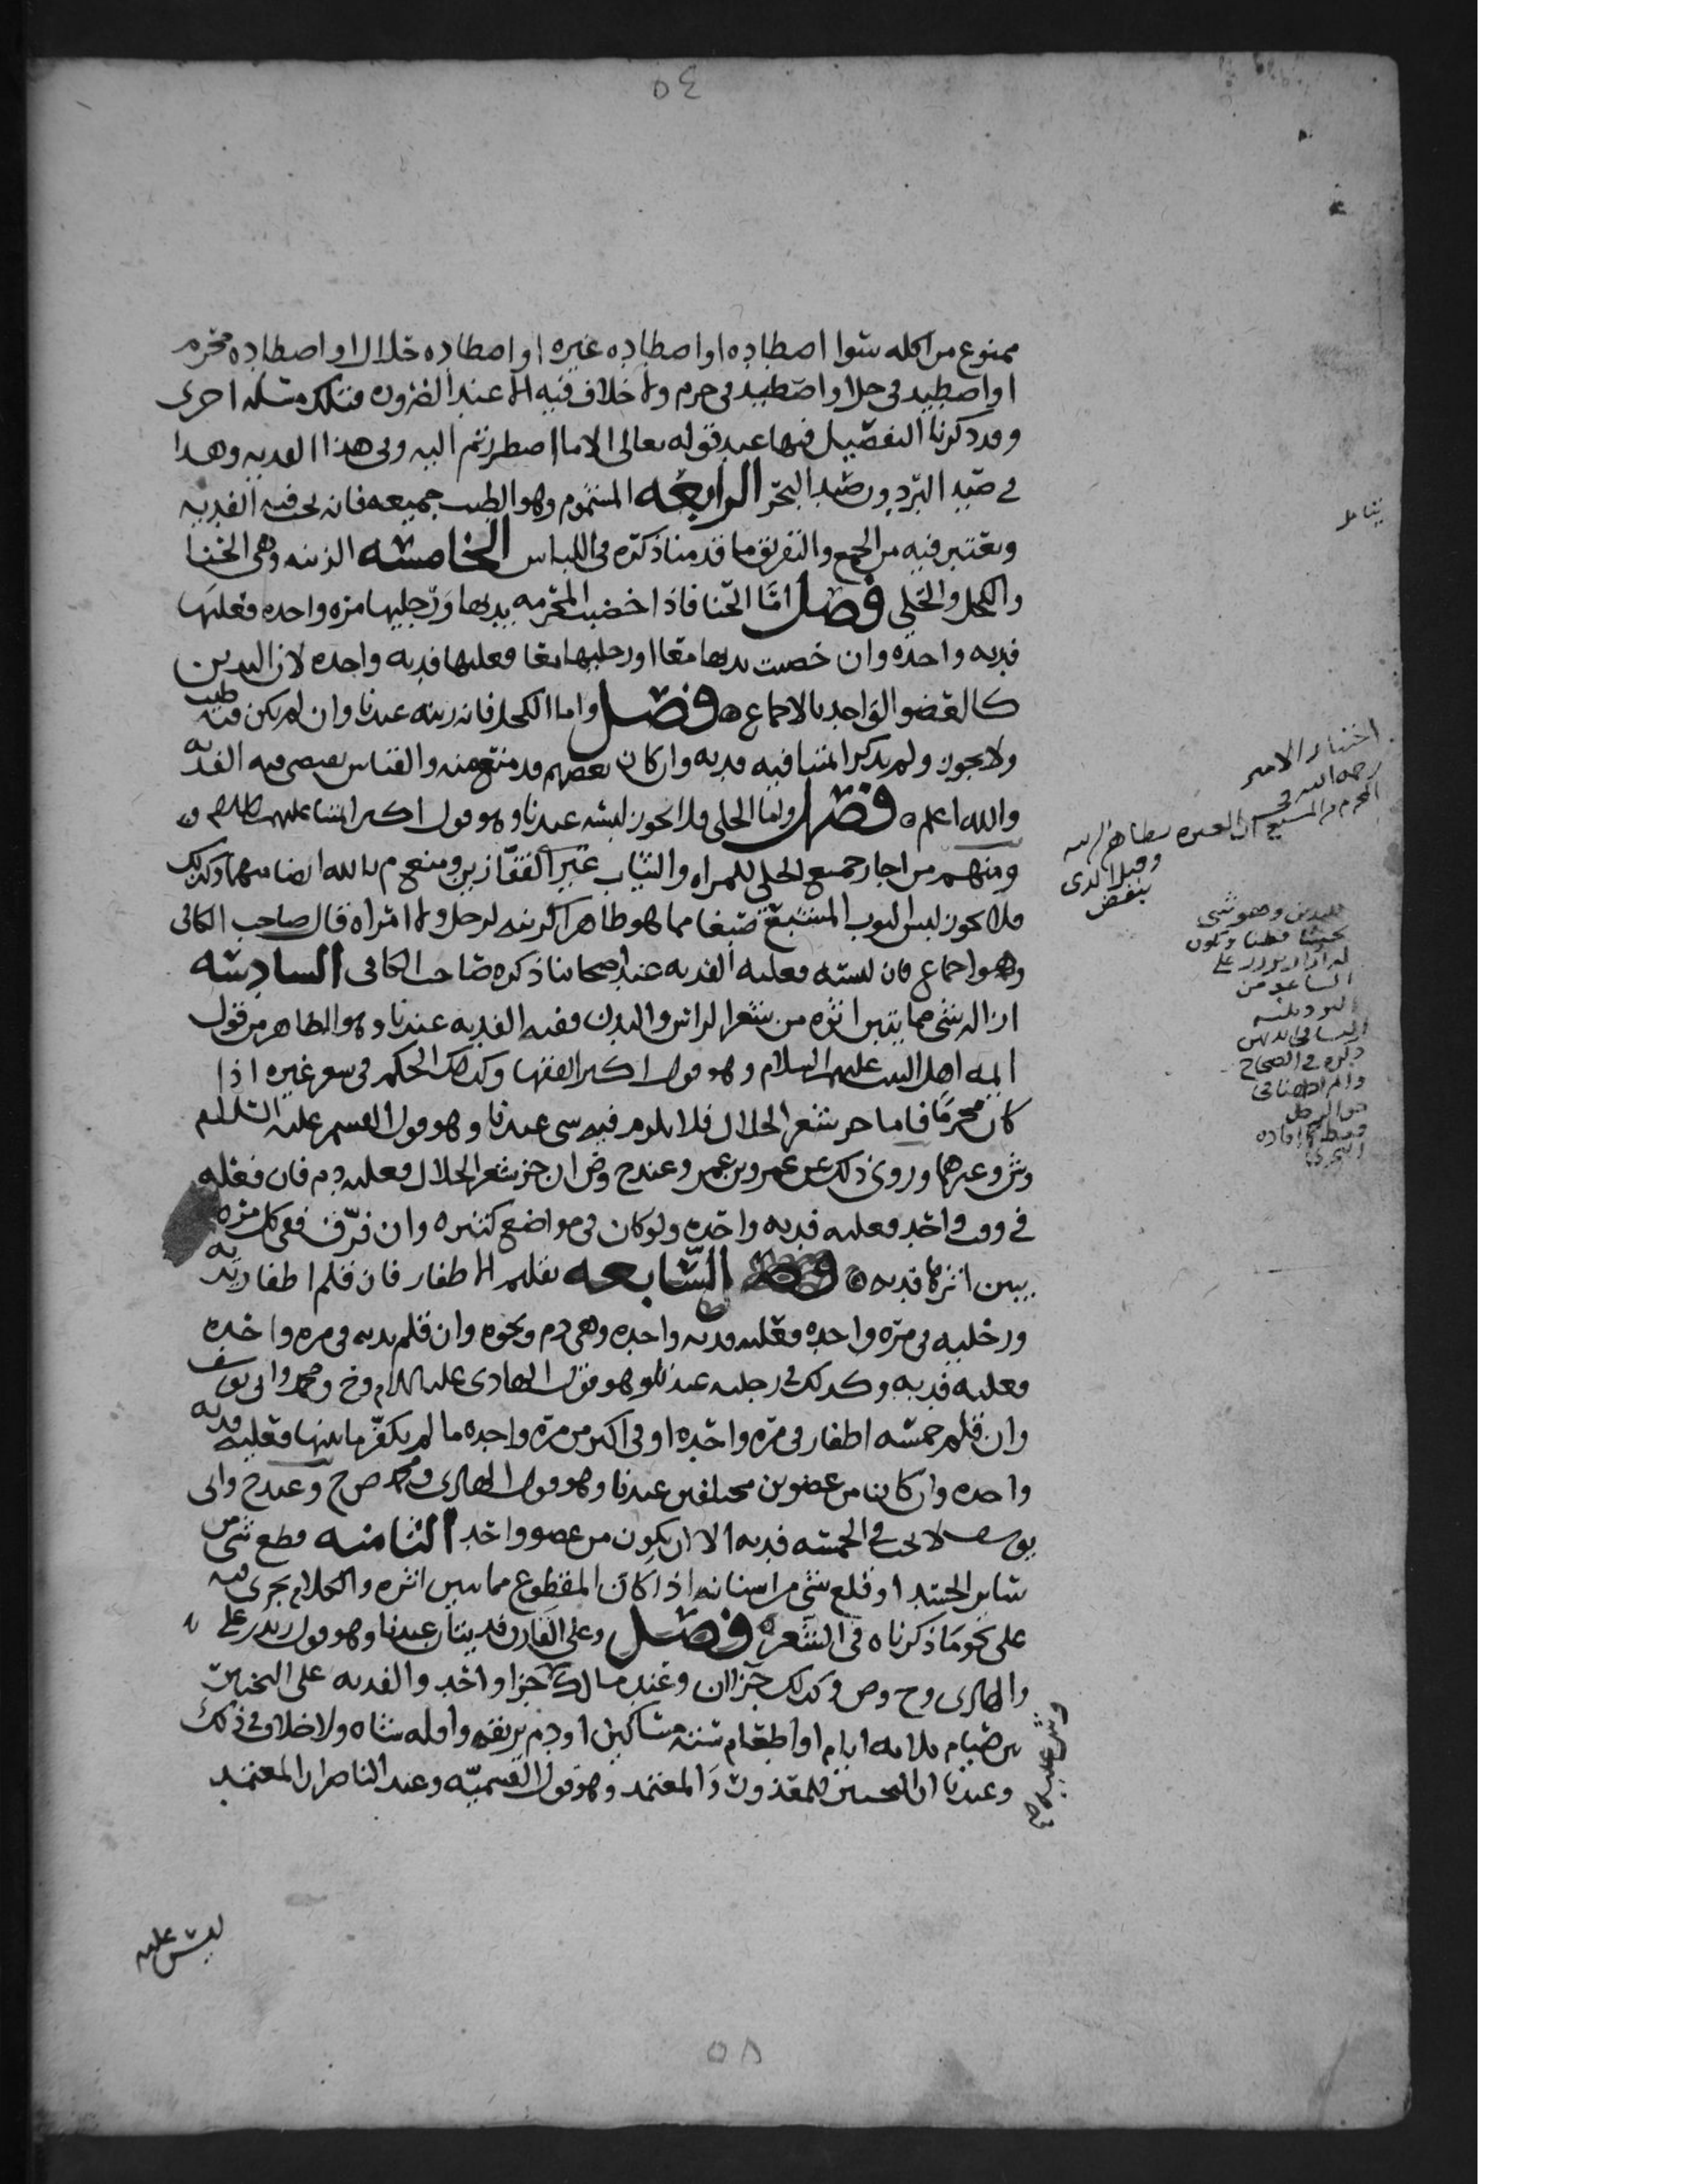 ٥٤
ممنوع من اكله سوا اصطاده او اصطاده غيره او اصطاده حلال او اصطاده محرم
او اصطيد في حل او اصطيد في حرم ولا خلاف فيه الا عند الضروره فتلك مسله اخرى
وقد ذكرنا التفصيل فيها عند قوله تعالى الا ما اضطررتم اليه وفي هذا الفديه وهذا
في صيد البر دون صيد البحر الرابعه المشموم وهو الطيب جميعه فانه يجب فيه الفديه
ويعتبر فيه من الجمع والتفريق ما قدمنا ذكره في اللباس الخامسه الزينه وهي الحنا
والكحل والحلي فصل اما الحنا فاذا خضبت المحرمه يديها ورجليها مره واحده فعليها
فديه واحده وان خضبت يديها معا او رجليها معا فعليها فديه واحده لان اليدين
كالعضو الواحد بالاجماع فصل واما الكحل فانه زينه عندنا وان لم يكن فيه طيب
ولا يجوز ولم يذكر ائمتنا فيه فديه وان كان بعضهم قد منع منه والقياس يقتضي فيه الفديه
والله اعلم فصل واما الحلي فلا يجوز لبسه عندنا وهو قول اكثر ائمتنا عليهم السلام
ومنهم من اجاز جميع الحلي للمراه والثياب غير القفازين ومنعهم بالله ايضا منهما وكذلك
فلا يجوز لبس الثوب المشبع صبغا مما هو ظاهر الزينه لرجل ولا امراه قال صاحب الكافي
وهو اجماع فان لبسه فعليه الفديه عند اصحابنا ذكره صاحب الكافي السادسه
ازاله شي مما يتبين اثره من شعر الراس والبدن ففيه الفديه عندنا وهو الظاهر من قول
ائمه اهل البيت عليهم السلام وهو قول اكثر الفقها وكذلك الحكم في شعر غيره اذا
كان محرما فاما جز شعر الحلال فلا يلزم فيه شي عندنا وهو قول القسم عليه السلام
وش وغيرهما وروى ذلك عن عمرو بن عمر وعند ح وص ان جز شعر الحلال فعليه دم فان فعله
في وقت واحد فعليه فديه واحده ولو كان في مواضع كثيره وان فرق ففي كل مره
يبين اثرها فديه السابعه تقليم الاظفار فان قلم اظفار يديه
ورجليه في مره واحده فعليه فديه واحده وهي دم ونحوه وان قلم يديه في مره واحده
فعليه فديه وكذلك في رجليه عندنا وهو قول الهادي عليه السلام وح ومحمد وابي يوسف
وان قلم خمسه اظفار في مره واحده او في اكثر من مره واحده ما لم يكفر ما بينها فعليه فديه
واحده وان كانا من عضوين مختلفين عندنا وهو قول الهادي ومحمد ص ح وعند ح وابي
يوسف لا يجب في الخمسه فديه الا ان يكون من عضو واحد الثامنه قطع شي من
ساير الجسد او قلع شي من اسنانه اذا كان المقطوع مما يبين اثره والكلام يجري فيه
على نحو ما ذكرناه في الشعر فصل وعلى القارن فديتان عندنا وهو قول زيد بن علي
والهادي وح وص وكذلك جزاان وعند مالك جزا واحد والفديه على التخيير
بين صيام ثلاثه ايام او اطعام سته مساكين او دم يريقه واقله شاه ولا خلاف في ذلك
وعندنا ان التخيير للمعذور والمعتمد وهو قول القسميه وعند الناصر ان المعتمد
ليس عليه
اختيار الامير
رحمه الله في
ان العبره بظاهر
وقيل الذي
ينفض
ذكره في الصحاح
٥٨